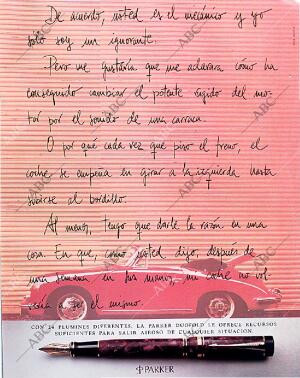 De acuerdo, usted es el mecánico y yo
sólo soy un ignorante.
Pero me gustaría que me aclarara cómo ha
conseguido cambiar el potente rugido del mo-
tor por el sonido de una carraca.
O por qué cada vez que piso el freno, el
coche se empeña en girar a la izquierda hasta
subirse al bordillo.
Al menos, tengo que darle la razón en una
cosa. En que, como usted dijo, después de
una semana en sus manos, mi coche no vol-
vería a ser el mismo.
CON 24 PLUMINES DIFERENTES, LA PARKER DUOFOLD LE OFRECE RECURSOS
SUFICIENTES PARA SALIR AIROSO DE CUALQUIER SITUACIÓN.
PARKER